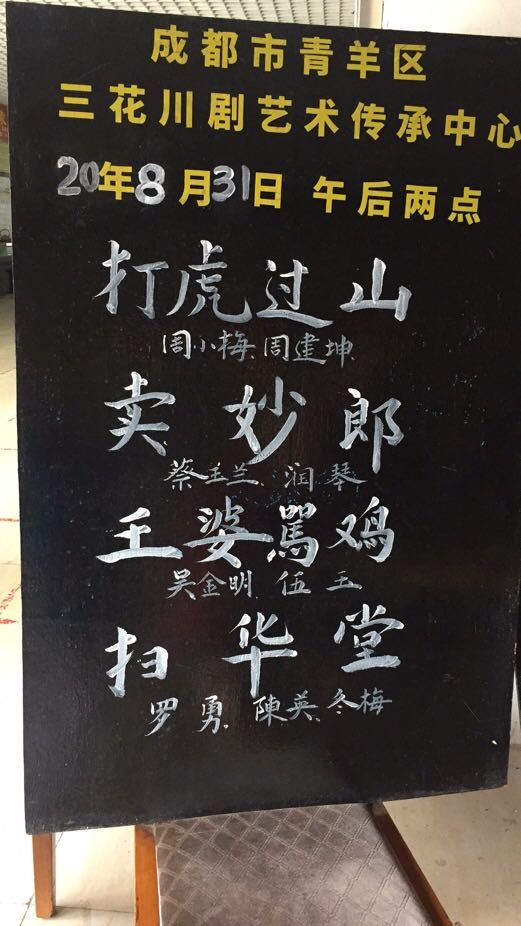 成都市青羊区
三花川剧艺术传承中心
20年8月31日 午后两点
打虎过山
周小梅 周建坤
卖妙郎
蔡玉兰 润琴
王婆骂鸡
吴金明 伍玉
扫华堂
罗勇 陳英 冬梅